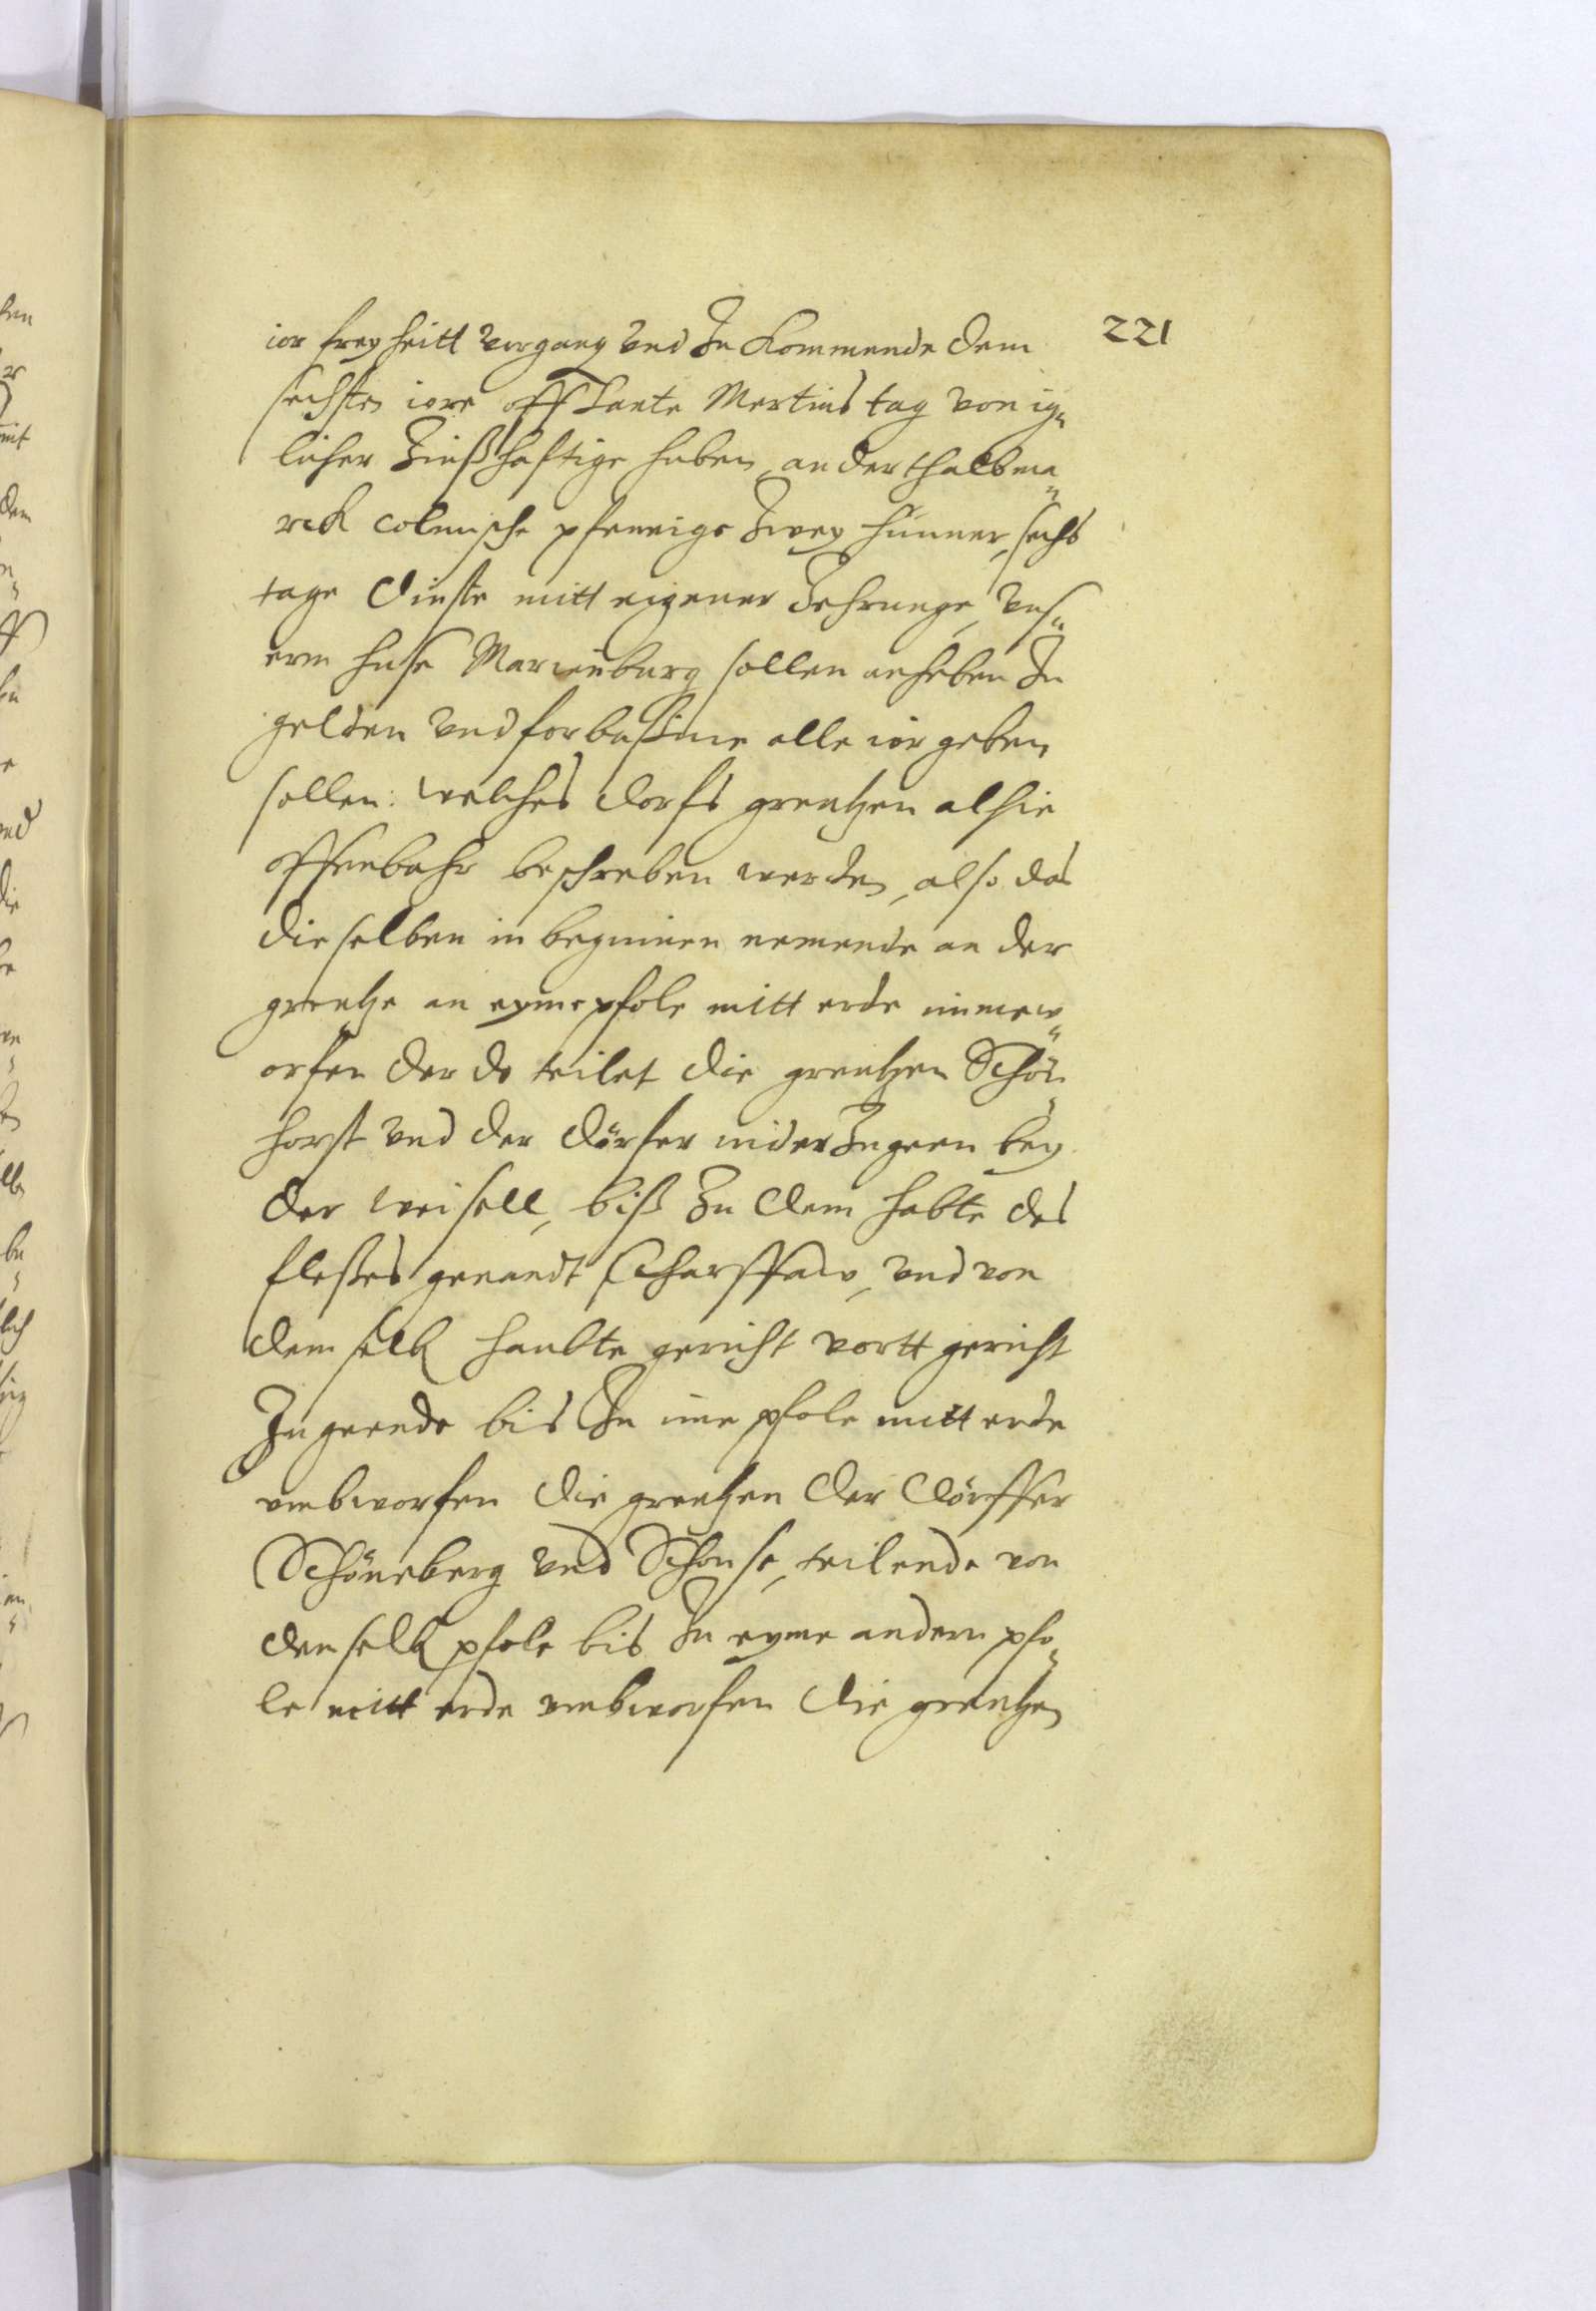 221
ior freyheitt vorgang vnd Zu Kommende dem
sechsten iore off Sante Mertins tag von ig¬
licher Zinßhafftige huben, anderthalbma¬
rck colmische pfennige Zwey hünner, sechs
tage dinste mitt eigener Zehrunge, vns¬
erm huse Marienburg sollen anheben Zu
gelden vnd forbasme alle ior geben
sollen: welches dorfs grentzen alhie
offenbahr beschreben werden, also das
dieselben in beginnen nemende an der
grentze an eyme pfole mitt erde ummew¬
orfen der do teilet die grentzen Schön¬
horst vnd der dörfer nider Zugeen bey
der weisell, biß Zu dem habte des
flesses genandt Scharffaw, vnd von
dem selb haubte gericht vortt gericht
Zugeende bis Zu ime pfole mitt erde
vmbworfen die grentzen der dörffer
Schöneberg vnd Schonse, teilende von
demselb pfole bis Zu eyme andern pfo¬
le mitt erde vmbworfen die grentzen